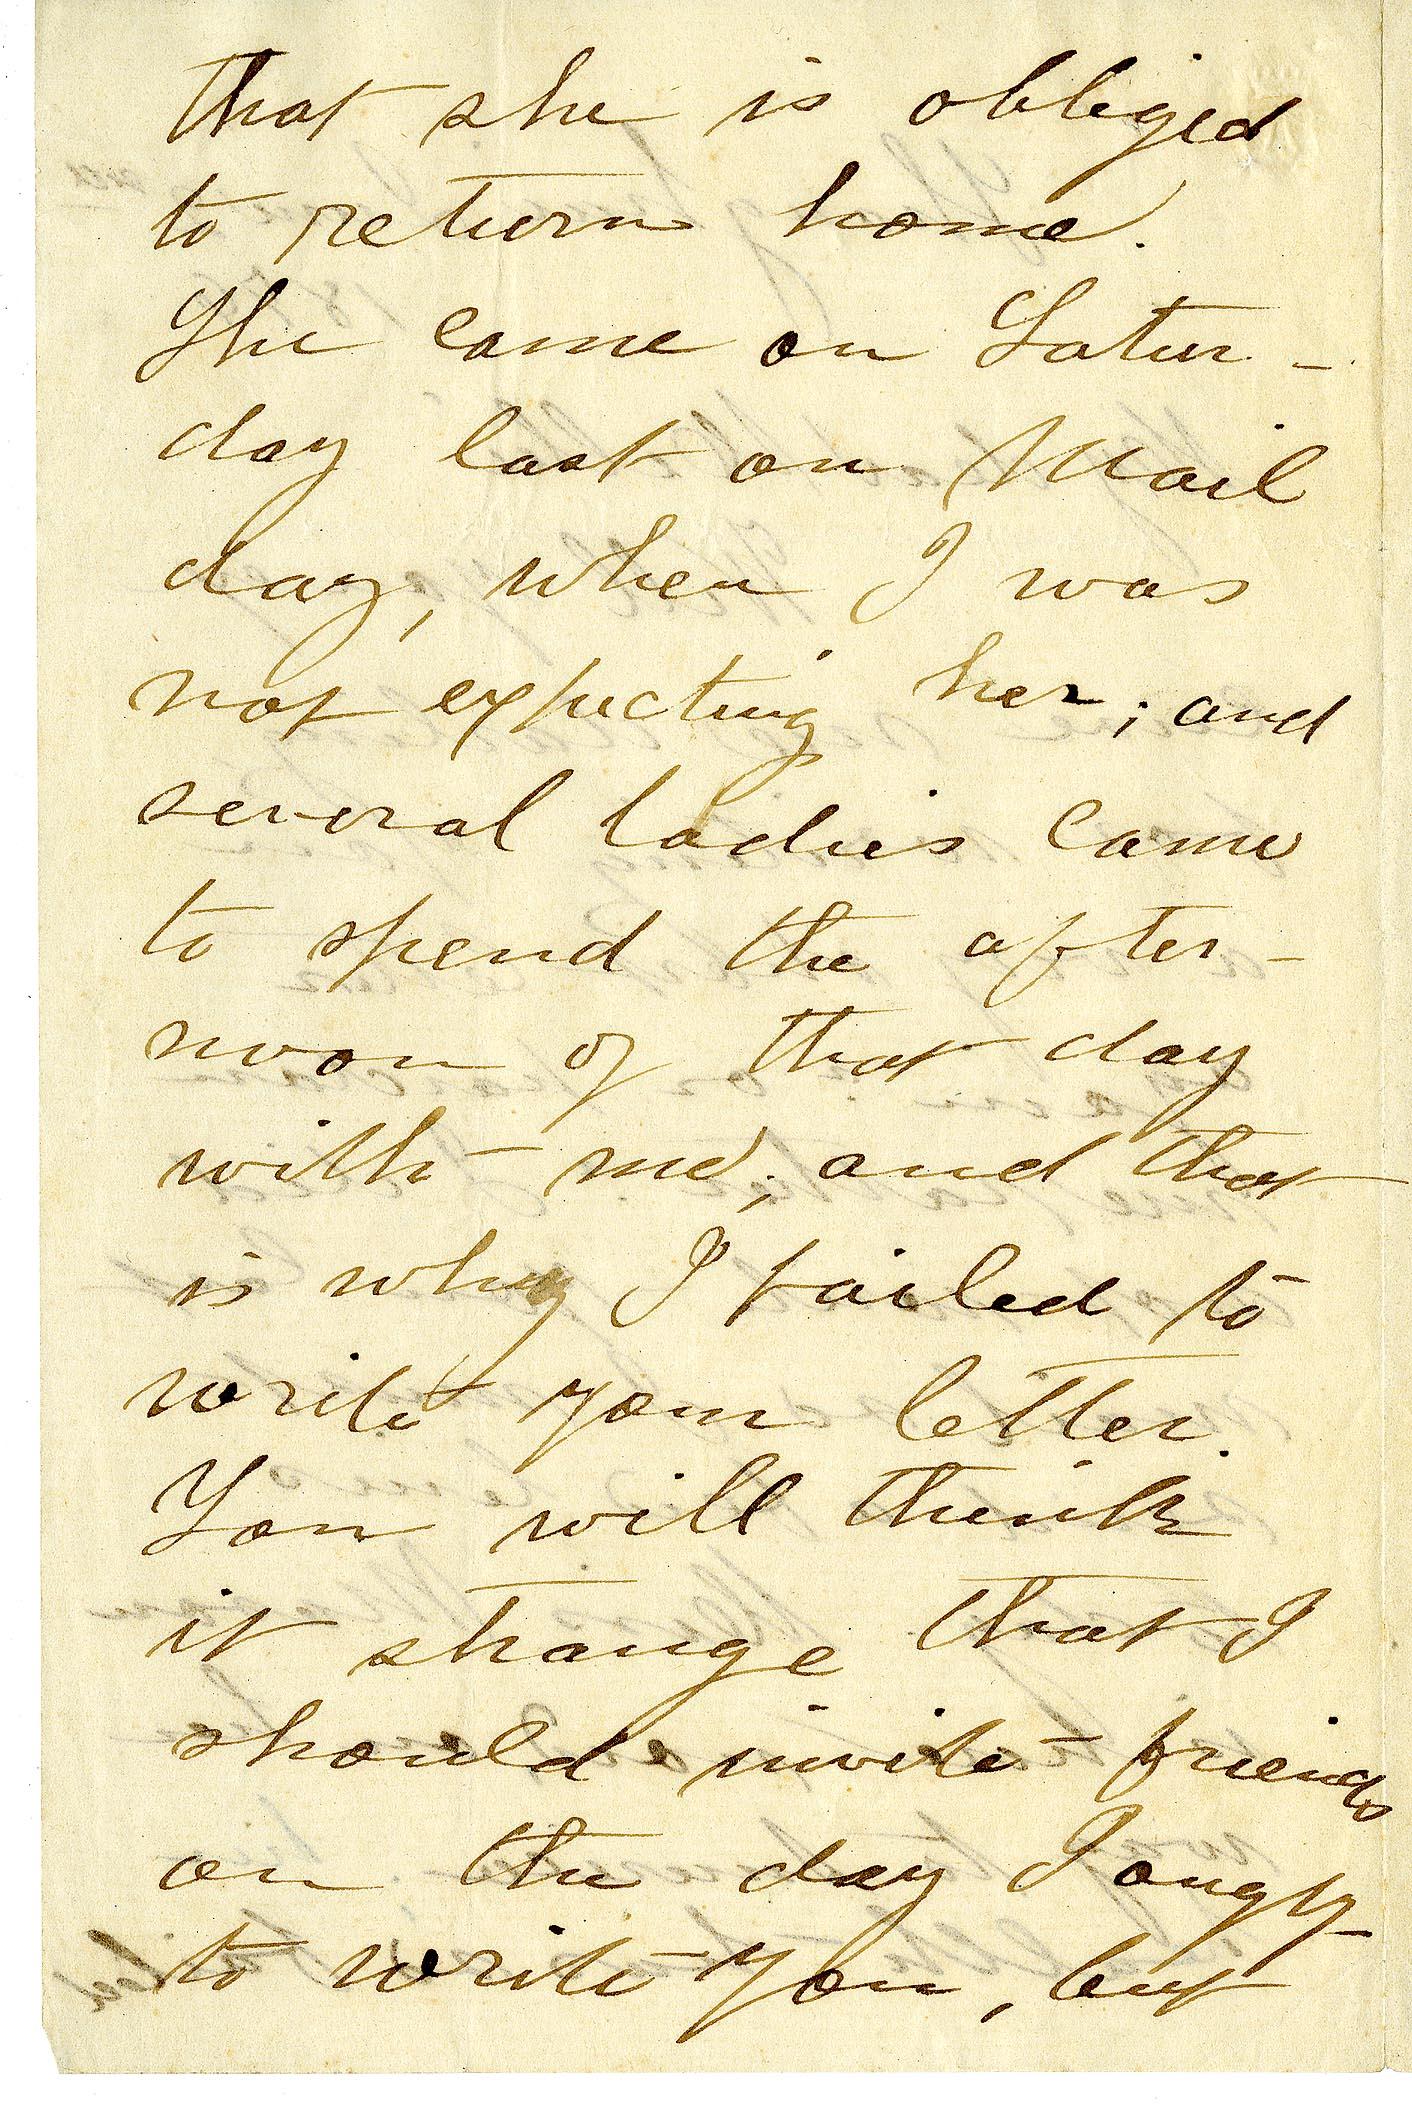 that she is obliged
to return home.
She came on Satur-
day last on Mail
day, when I was
not expecting her; and
several ladies came
to spend the after-
noon of that day
with me; and that
is why I failed to
write your letter.
You will think
it strange that I
should invite friends
on the day I ought
to write you, but